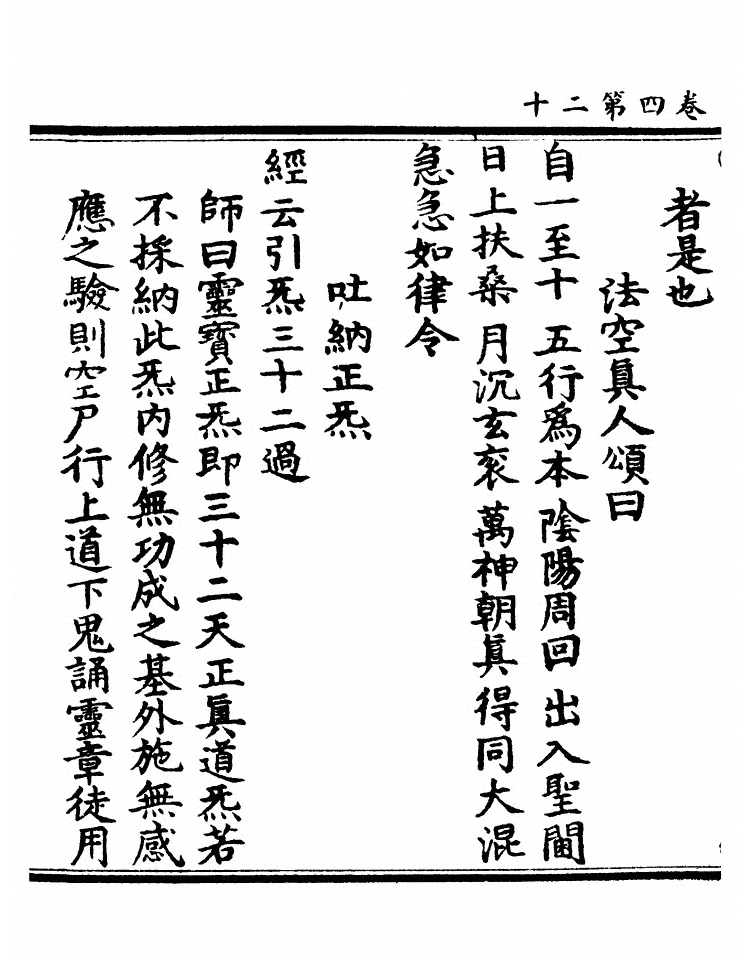 卷四第二十
者是也
法空真人頌曰
自一至十 五行爲本 陰陽周回 出入聖閫
日上扶桑 月沉玄衮 萬神朝真 得同大混
急急如律令
吐納正炁
經云引炁三十二過
師曰靈寶正炁即三十二天正真道炁若
不採納此炁内修無功成之基外施無感
應之驗則空尸行上道下鬼誦靈章徒用